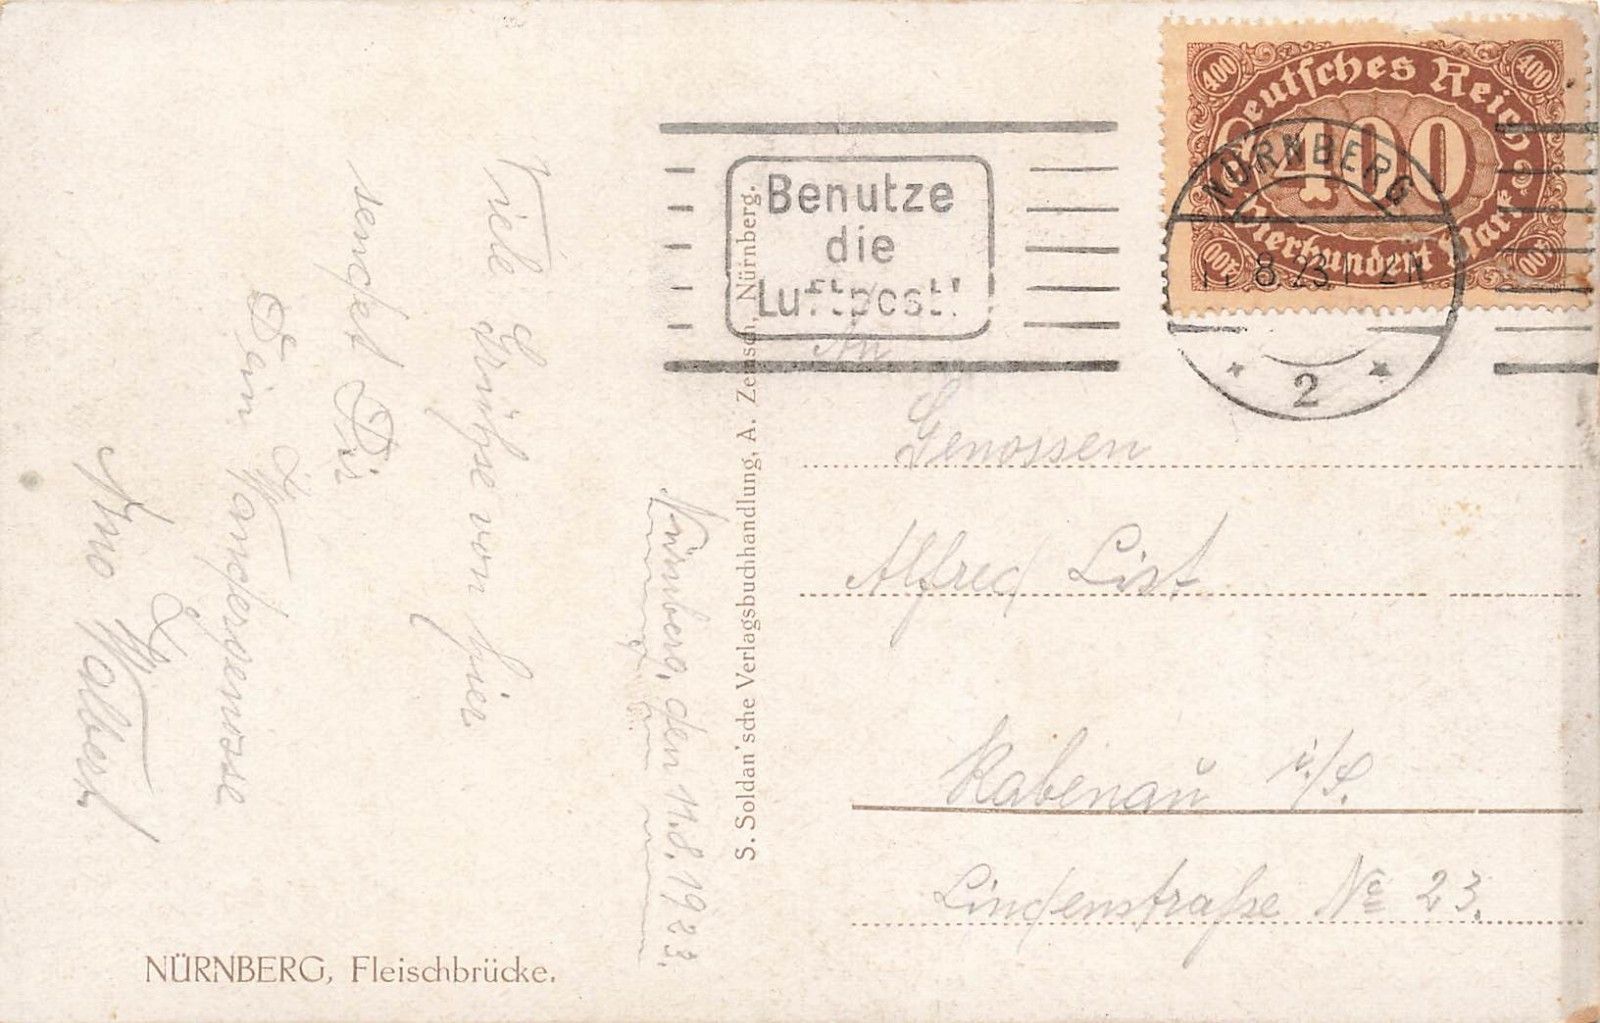 Nürnberg, den 11.8.1923.
Viele Grüße von hier
sendet Dir
Dein Wandergenosse
Arno Walbert
NÜRNBERG, Fleischbrücke.
S. Soldan'sche Verlagsbuchhandlung, A. Zemsch, Nürnberg.
Benutze
die
Luftpost!
400 400
Deutsches Reich
400
Vierhundert Mark
400 400
NÜRNBERG
8.23.
* 2 *
An
Genossen
Alfred List
Rabenau i/S.
Lindenstraße No 23.